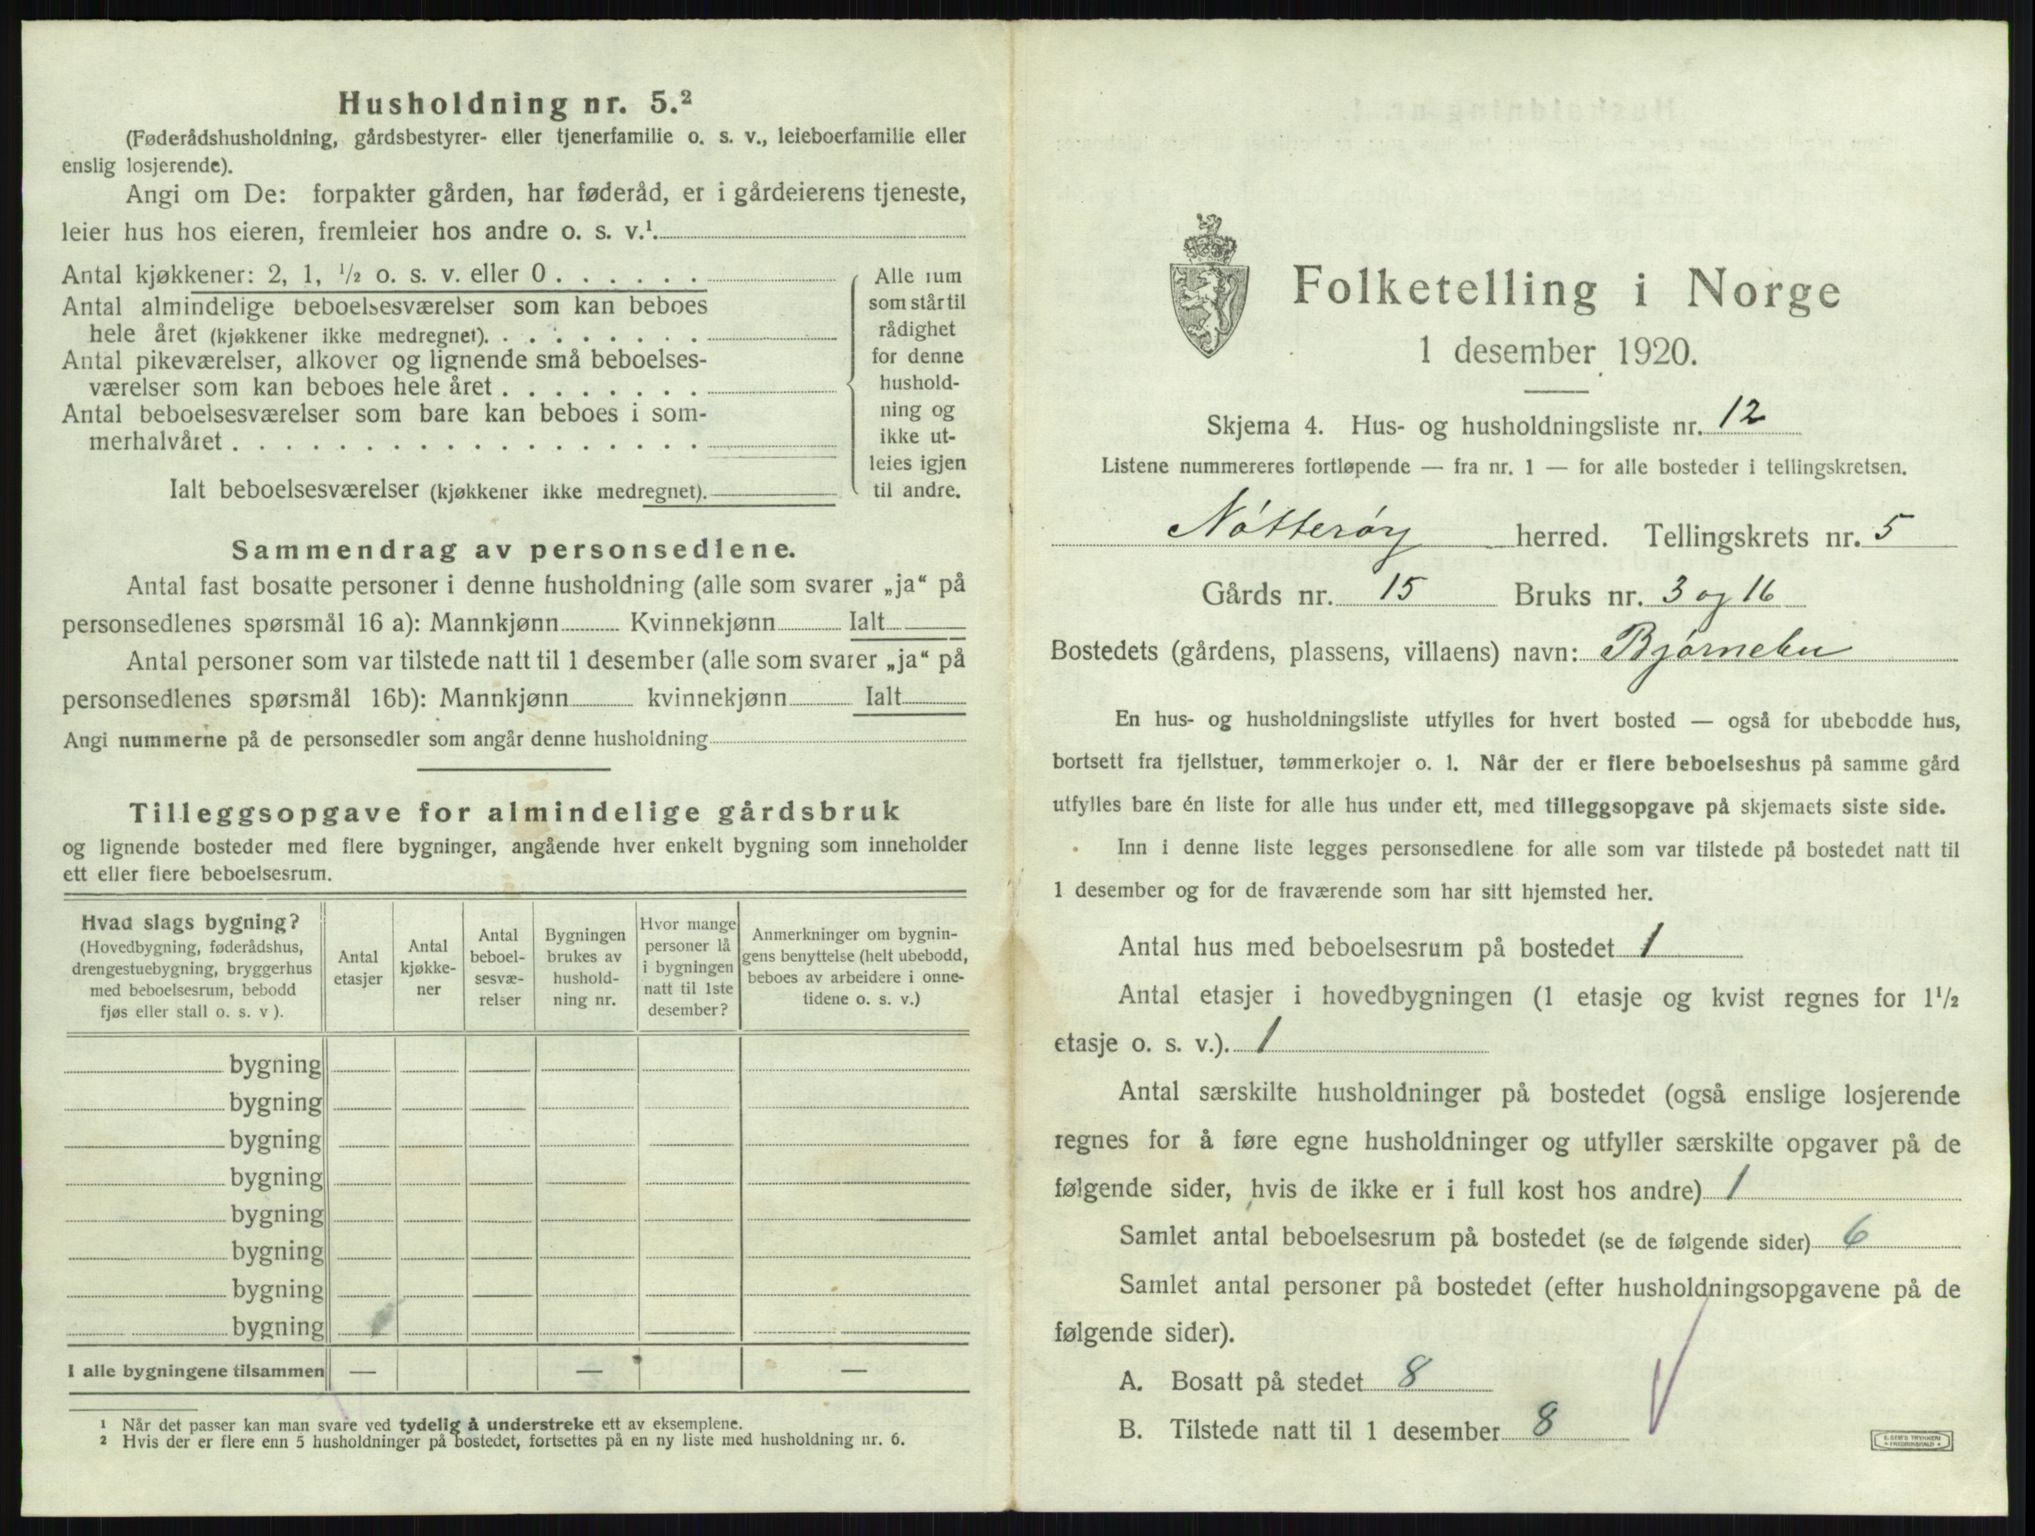 Husholdning nr. 5.²
(Føderådshusholdning, gårdsbestyrer- eller tjenerfamilie o. s. v., leieboerfamilie eller
enslig losjerende).
Angi om De: forpakter gården, har føderåd, er i gårdeierens tjeneste,
leier hus hos eieren, fremleier hos andre o. s. v.¹.
Antal kjøkkener: 2, 1, ½ o. s. v. eller 0 . . . . . .
Antal almindelige beboelsesværelser som kan beboes
hele året (kjøkkener ikke medregnet). . . . . . . . .
Antal pikeværelser, alkover og lignende små beboelses-
værelser som kan beboes hele året . . . . . . . .
Antal beboelsesværelser som bare kan beboes i som-
merhalvåret . . . . . . . . . . . . . . . . . .
Ialt beboelsesværelser (kjøkkener ikke medregnet).
Alle rum
som står til
rådighet
for denne
hushold-
ning og
ikke ut-
leies igjen
til andre.
Sammendrag av personsedlene.
Antal fast bosatte personer i denne husholdning (alle som svarer „ja“ på
personsedlenes spørsmål 16 a): Mannkjønn Kvinnekjønn Ialt
Antal personer som var tilstede natt til 1 desember (alle som svarer „ja“ på
personsedlenes spørsmål 16b): Mannkjønn kvinnekjønn Ialt
Angi nummerne på de personsedler som angår denne husholdning
Tilleggsopgave for almindelige gårdsbruk
og lignende bosteder med flere bygninger, angående hver enkelt bygning som inneholder
ett eller flere beboelsesrum.
Hvad slags bygning?
(Hovedbygning, føderådshus,
drengestuebygning, bryggerhus
med beboelsesrum, bebodd
fjøs eller stall o. s. v ).
Antal
etasjer
Antal
kjøkke-
ner
Antal
beboel-
sesvæ-
relser
Bygningen
brukes av
hushold-
ning nr.
Hvor mange
personer lå
i bygningen
natt til 1ste
desember?
Anmerkninger om bygnin-
gens benyttelse (helt ubebodd,
beboes av arbeidere i onne-
tidene o. s. v.)
bygning
bygning
bygning
bygning
bygning
bygning
bygning
bygning
I alle bygningene tilsammen — — —
¹ Når det passer kan man svare ved tydelig å understreke ett av eksemplene.
² Hvis der er flere enn 5 husholdninger på bostedet, fortsettes på en ny liste med husholdning nr. 6.
Folketelling i Norge
1 desember 1920.
Skjema 4. Hus- og husholdningsliste nr. 12
Listene nummereres fortløpende — fra nr. 1 — for alle bosteder i tellingskretsen.
Nøtterøy herred. Tellingskrets nr. 5
Gårds nr. 15 Bruks nr. 3 og 16
Bostedets (gårdens, plassens, villaens) navn: Bjørnebu
En hus- og husholdningsliste utfylles for hvert bosted — også for ubebodde hus,
bortsett fra fjellstuer, tømmerkojer o. l. Når der er flere beboelseshus på samme gård
utfylles bare én liste for alle hus under ett, med tilleggsopgave på skjemaets siste side.
Inn i denne liste legges personsedlene for alle som var tilstede på bostedet natt til
1 desember og for de fraværende som har sitt hjemsted her.
Antal hus med beboelsesrum på bostedet 1
Antal etasjer i hovedbygningen (1 etasje og kvist regnes for 1½
etasje o. s. v.). 1
Antal særskilte husholdninger på bostedet (også enslige losjerende
regnes for å føre egne husholdninger og utfyller særskilte opgaver på de
følgende sider, hvis de ikke er i full kost hos andre) 1
Samlet antal beboelsesrum på bostedet (se de følgende sider) 6
Samlet antal personer på bostedet (efter husholdningsopgavene på de
følgende sider).
A. Bosatt på stedet 8
B. Tilstede natt til 1 desember 8
E. SEM'S TRYKKERI
FREDRIKSHALD